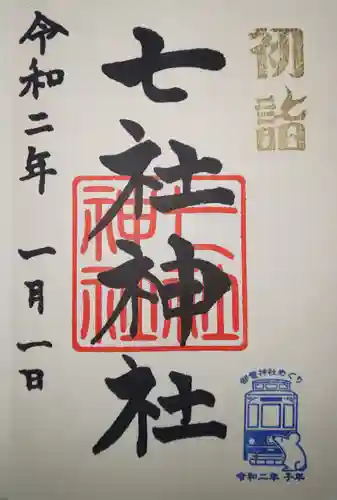 初詣
七社神社
七社神社
令和二年 一月一日
御電神社めぐり
令和二年 子年